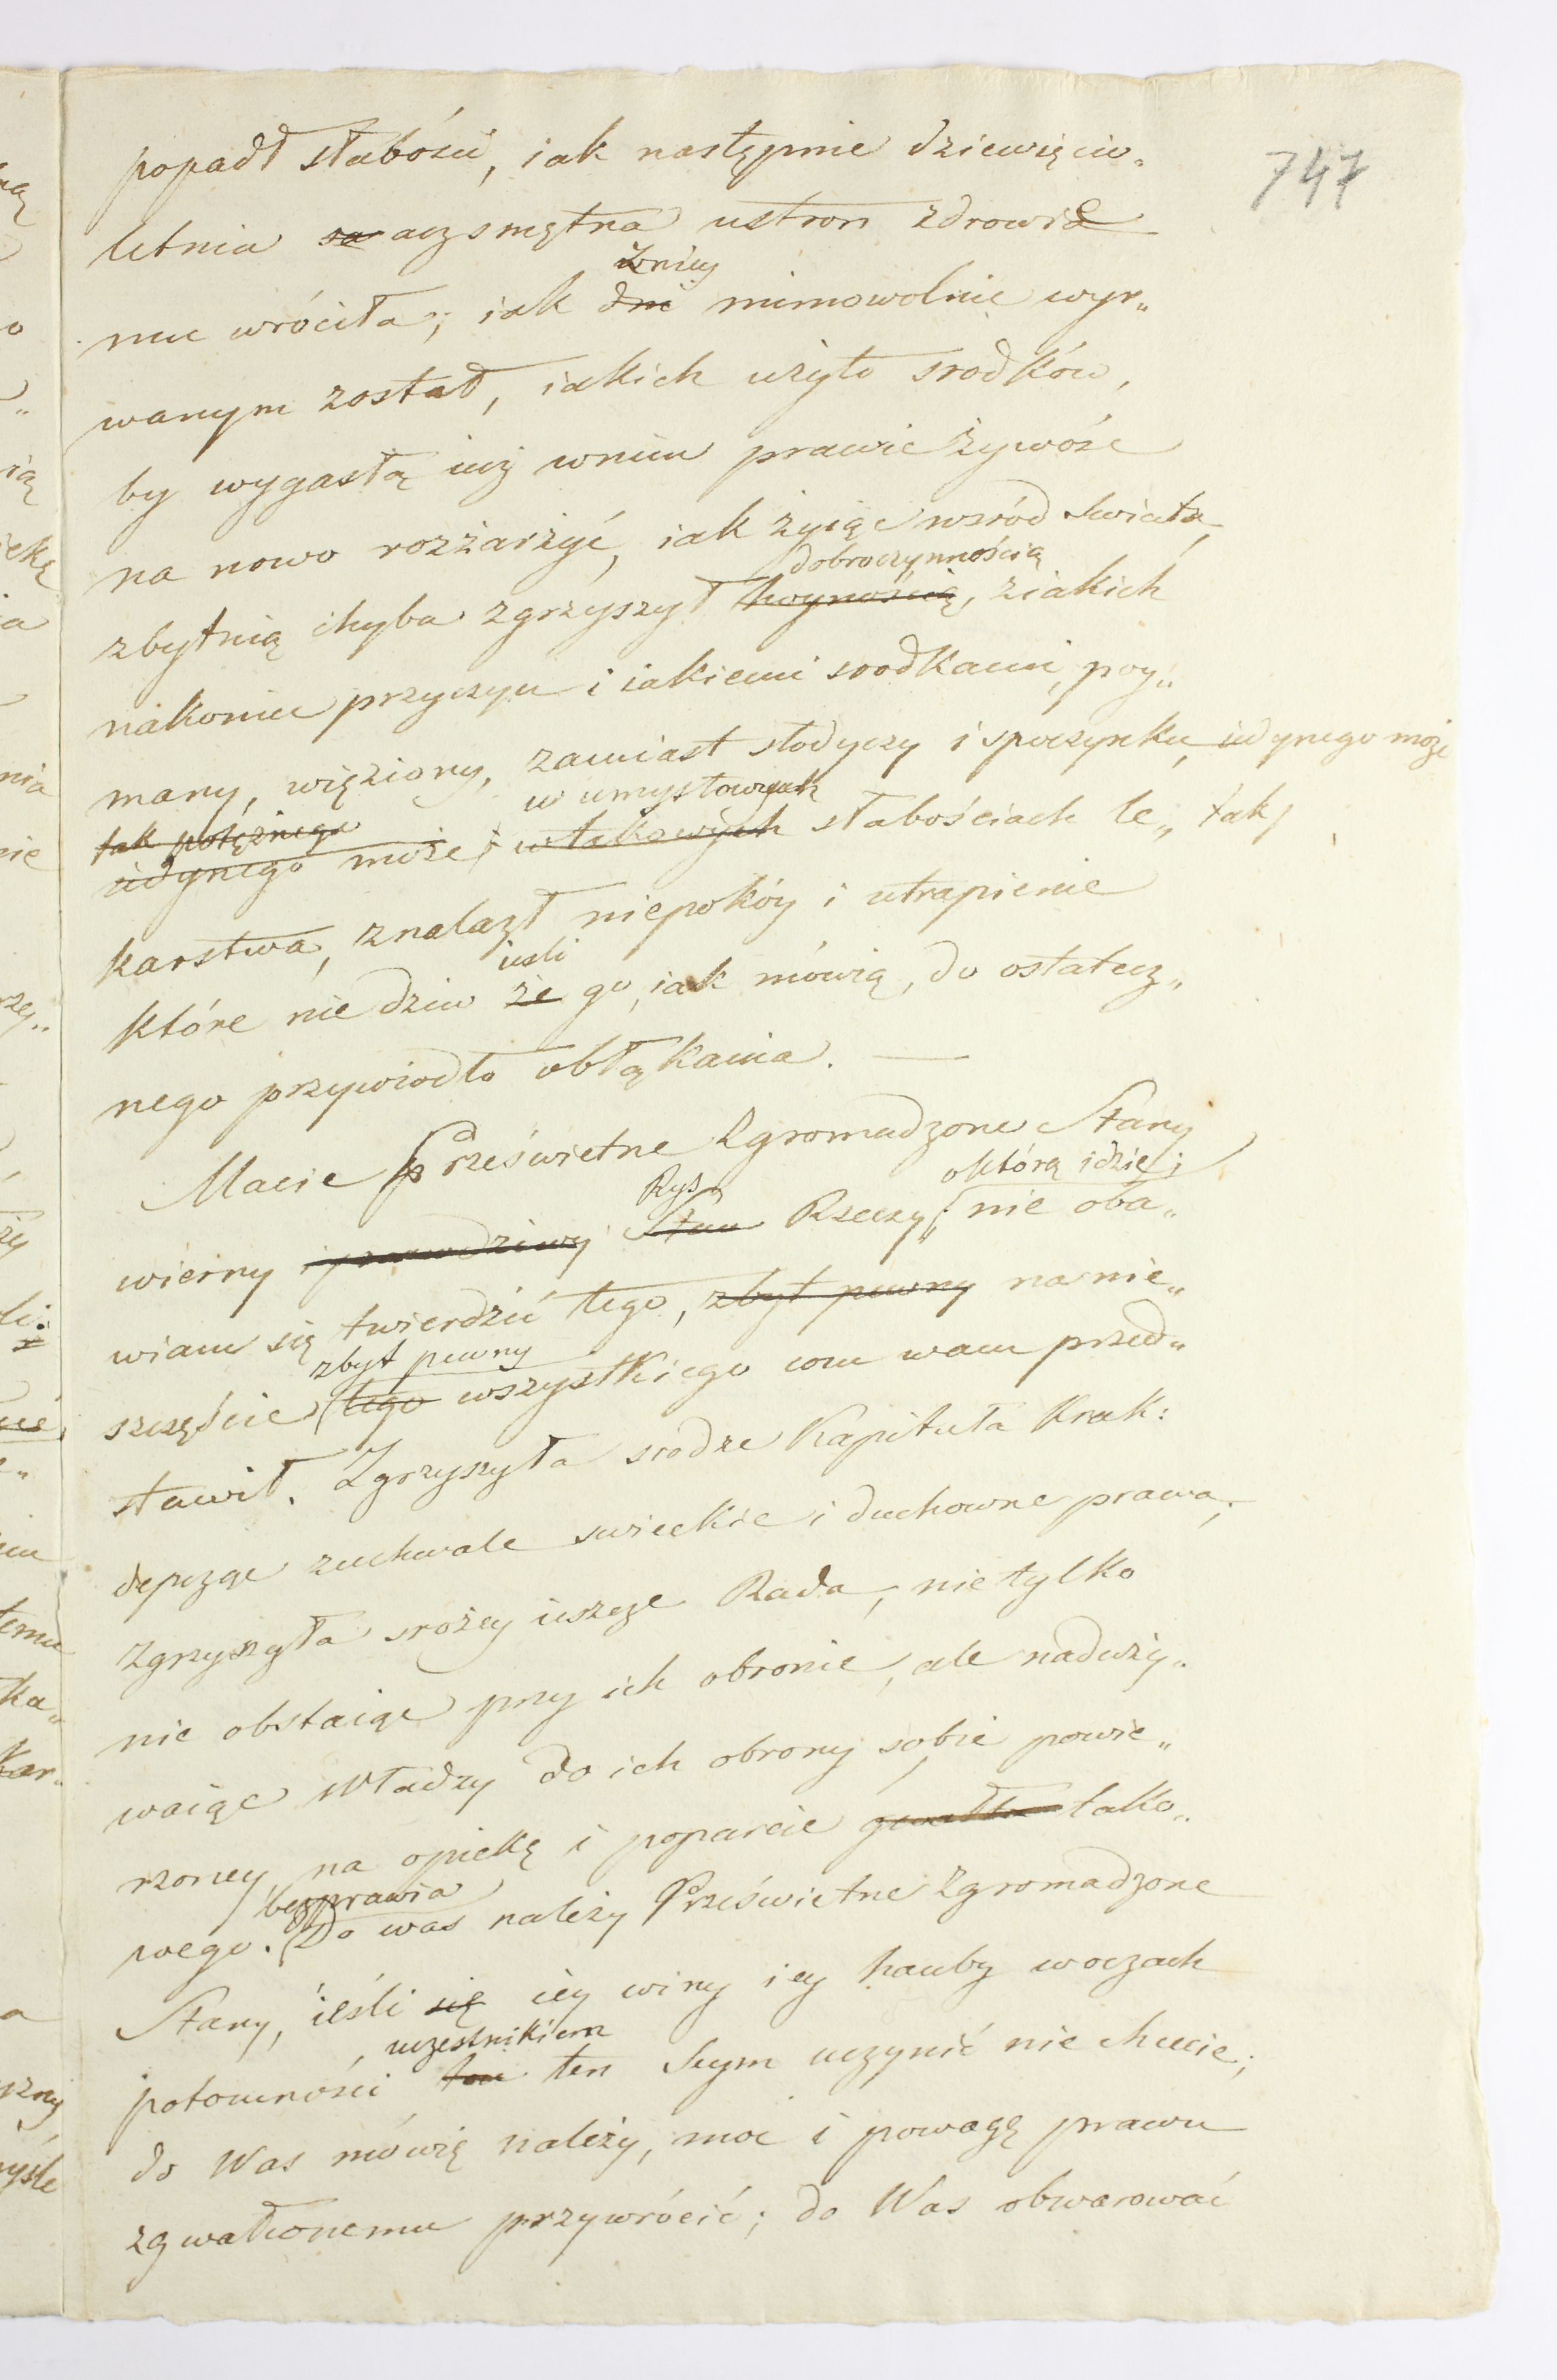 747
popadł słabości, iak następnie dziewięcio„
letnia aczsmętna ustroń zdrowie
zniey
mu wróciła; iak mimowolnie wyr„
wanym został, iakich użyto srodków,
by wygasłą iuż wnim prawie żywość
na nowo rozżarżyć, iak żyiąc wsród Swiata,
dobroczynnością
zbytnią chyba zgrzyszył hoynością, ziakich
nakoniec przyczyn i iakiemi srodkami, poy„
many, więziony, zamiast słodyczy i spoczynku, iedynego może
w umysłowych
tak potężnego
iedynego może i wtakowych słabościach le„ tak
karstwa, znalazł niepokóy i utrapienie
ieśli
które nie dziw że go, iak mówią, do ostatecz„
nego przywiodło obłąkania. —
Macie Prześwietne Zgromadzone Stany
Rys
októrą idzie;
wierny i prawdziwy Stan Rzeczy; nie oba„
wiam się twierdzić tego, zbyt pewny na nie„
zbyt pewny
szczęście tego wszystkiego com wam przed„
stawił. Zgrzyszyła srodze Kapituła Krak:
depcząc zuchwale swieckie i duchowne prawa;
zgrzyszyła srożey ieszcze Rada, nie tylko
nie obstaiąc przy ich obronie, ale naduży„
waiąc Władzy do ich obrony sobie powie„
rzoney, na opiekę i poparcie gwałtu tako„
bezprawia
wego. Do was należy Prześwietne Zgromadzone
Stany, ieśli się iey winy iey hańby woczach
uczestnikiem
potomności ten Seym uczynić nie chcecie;
do Was mówię należy, moc i powagę prawu
zgwałconemu przywrócić; do Was obwarować